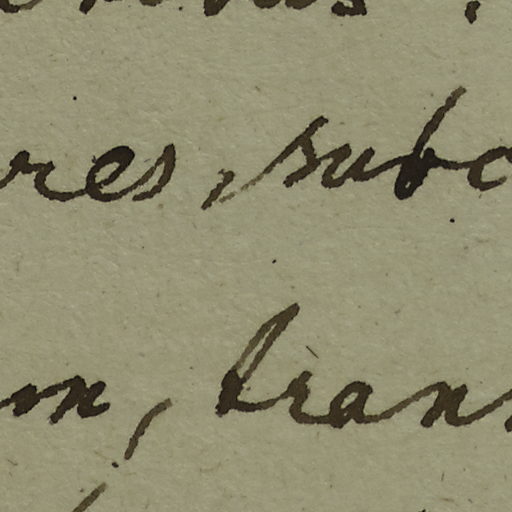 res, subc
m, trans